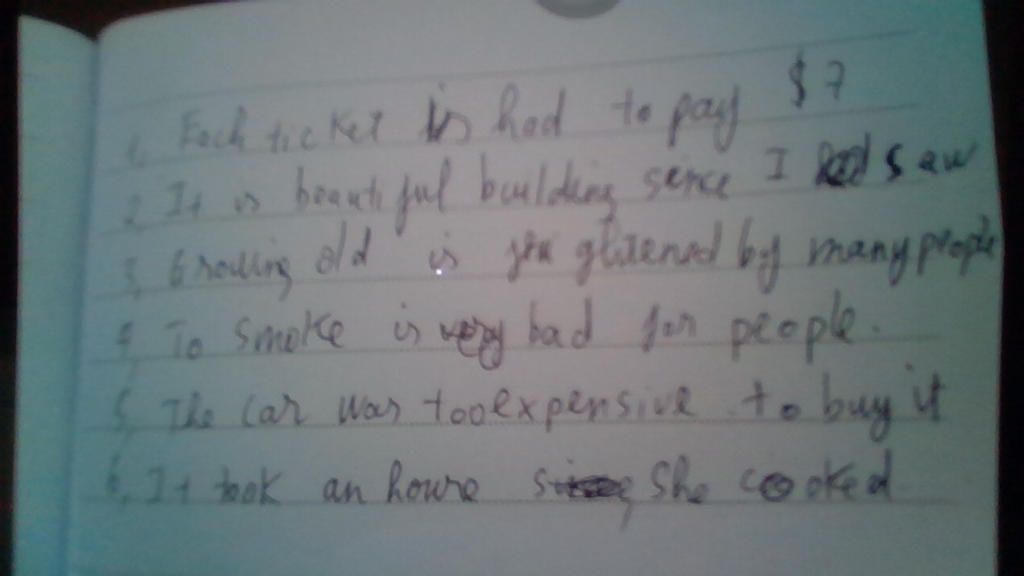 1, Each ticket is had to pay $7
2, It is beautiful building sence I saw
3, Growing old is by many people
4, To smoke is very bad for people.
5, The car was too expensive to buy it
6, It took an houre she cooked